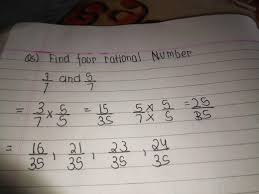 Q5) Find four rational Number
3/7 and 5/7
= 3/7 × 5/5 = 15/35 5/7 × 5/5 = 25/35
= 16/35, 21/35, 23/35, 24/35